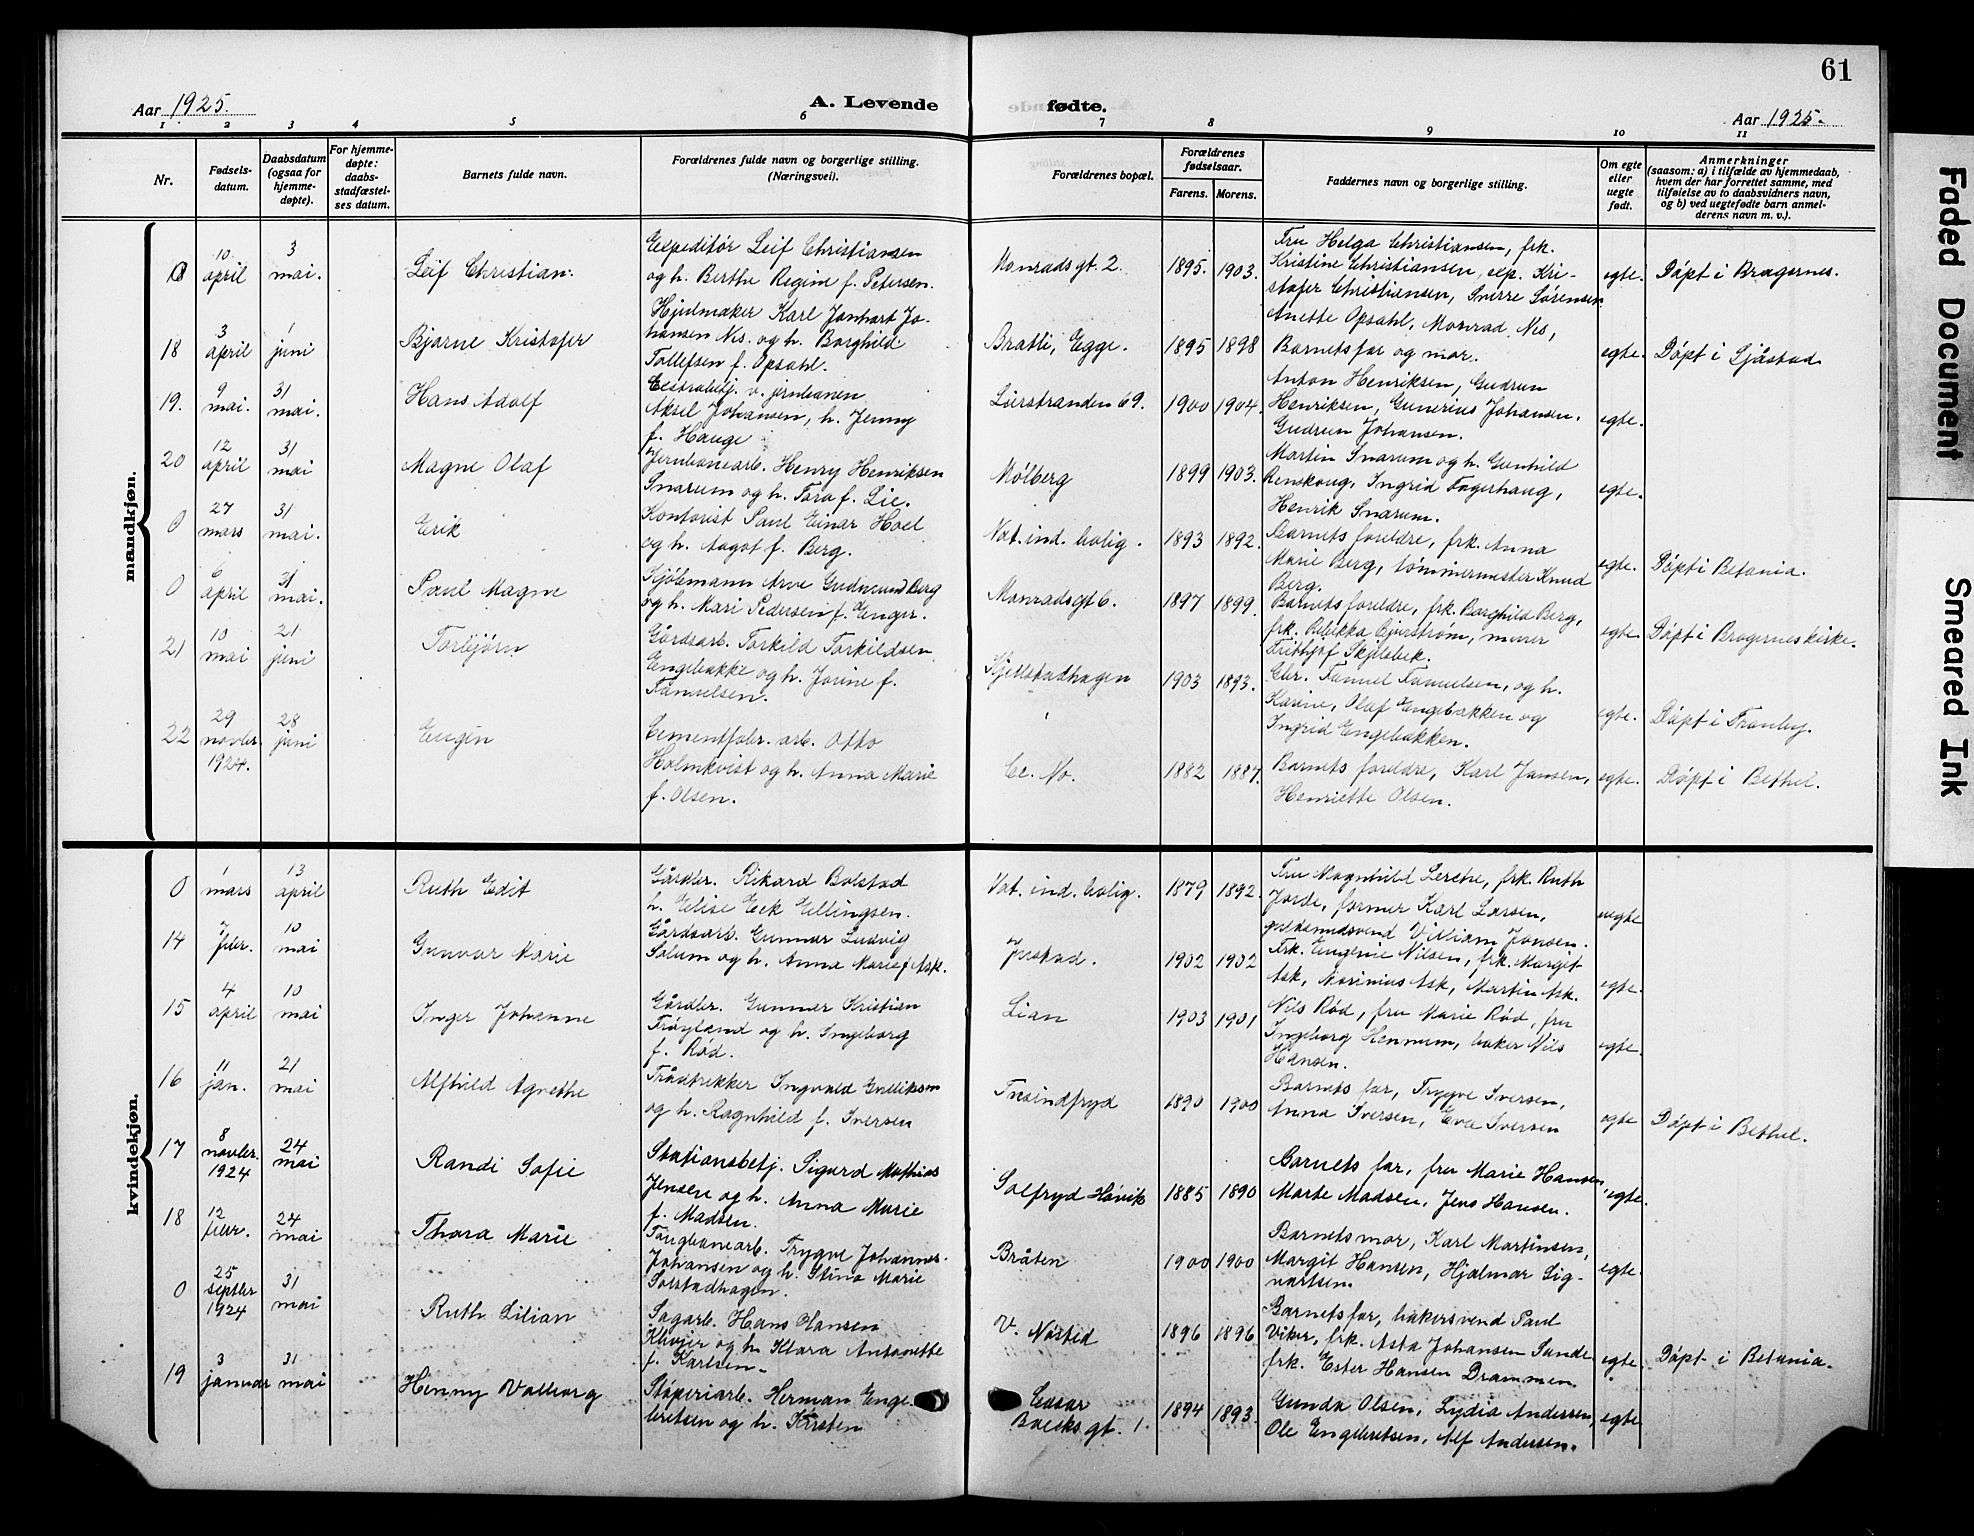 61
Aar 1925.
A. Levende fødte.
Aar 1925.
1 2 3 4 5 6 7 8 9 10 11
Nr.
Fødsels-
datum.
Daabsdatum
(ogsaa for
hjemme-
døpte).
For hjemme-
døpte:
daabs-
stadfæstel-
ses datum.
Barnets fulde navn.
Forældrenes fulde navn og borgerlige stilling.
(Næringsvei).
Forældrenes bopæl.
Forældrenes
fødselsaar.
Farens. Morens.
Faddernes navn og borgerlige stilling.
Om egte
eller
uegte
født.
Anmerkninger
(saasom: a) i tilfælde av hjemmedaab,
hvem der har forrettet samme, med
tilføielse av to daabsvidners navn,
og b) ved uegtefødte barn anmel-
derens navn m. v.).
mandkjøn.
0
10
april
3
mai.
Leif Christian.
Expeditør Leif Christiansen
og h. Berthe Regine f. Petersen.
Monradsgt. 2.
1895. 1903.
Fru Helga Christiansen, frk.
Kristine Christiansen, exp. Kri-
stofer Christiansen, Sverre Sørensen
egte.
Døpt i Bragernes.
18
3
april
1
juni
Bjarne Kristofer
Hjulmaker Karl Jonhart Jo-
hansen Nes. og h. Borghild
Tollefsen f. Opsahl.
Bratli, Egge.
1895 1898
Anette Opsahl, Monrad Nes,
Barnets far og mor.
egte.
Døpt i Sjåstad
19.
9
mai.
31
mai.
Hans Adolf
Extrabetj. v. jernbanen
Aksel Johansen, h. Jenny
f. Hauge
Lierstranden 69.
1900 1904.
Anton Henriksen, Gudrun
Henriksen, Gunerius Johansen,
Gudrun Johansen.
egte.
20
12
april
31
mai
Magne Olaf
Jernbanearb. Henry Henriksen
Snarum og h. Tora f. Lie.
Mølberg
1899 1903.
Martin Snarum og h. Gunhild
Renskoug, Ingrid Fagerhaug,
Henrik Snarum.
egte.
0
27
mars
31
mai.
Erik
Kontorist Paul Einar Hoel
og h. Aagot f. Berg.
Vat. ind. bolig.
1893 1892.
Barnets foreldre, frk. Anna
Marie Berg, tømmermester Knud
Berg.
egte.
Døpt i Betania.
0
6
april
31
mai.
Paul Magne
Sjøbmann Arve Gudmund Berg
og h. Mari Pedersen f. Enger.
Monradsgt 6.
1897 1899.
Barnets foreldre, frk. Borghild Berg,
frk. Rebekka Bjerstrøm, murer
Fritjof Skjelsbek.
egte
Døpt i Bragerneskirke.
21
10
mai
21
juni
Torbjørn
Gårdsarb. Torkild Torkildsen
Engebakke og h. Jorine f.
Samuelsen.
Kjellstadhagen
1903 1893.
Gbr. Samuel Samuelsen, og h.
Karine, Olaf Engebakken og
Ingrid Engebakken.
egte.
Døpt i Tranby.
22
29
novbr.
1924.
28
juni
Eugen
Cementfabr. arb. Otto
Holmkvist og h. Anna Marie
f. Olsen.
Ce. No.
1882 1887.
Barnets foreldre, Karl Jansen,
Henriette Olsen.
egte.
Døpt i Bethel.
kvindekjøn.
0
1
mars
13
april
Ruth Edit
Gårdbr. Rikard Bolstad
h. Elise Eek Ellingsen.
Vat. ind. bolig.
1879 1892
Fru Magnhild Lerche, frk. Ruth
Jorde, former Karl Larsen,
guldsmedsvend William Jansen.
uegte
14
7
febr.
10
mai
Gunvor Marie
Gårdsarb. Gunnar Ludvig
Solum og h. Anna Marie f. Ask.
Jerstad.
1902 1902
Frk. Eugenie Nilsen, frk. Margit
Ask, Marinius Ask, Martin Ask.
egte.
15
4
april
10
mai
Inger Johanne
Gårdbr. Gunnar Kristian
Frøyland og h. Ingeborg
f. Rød.
Lian
1903 1901
Nils Rød, fru Marie Rød, fru
Ingeborg Hennum, baker Nils
Hansen.
egte.
16
11
jan.
21
mai
Alfhild Agnethe
Trådtrekker Ingvald Gulliksen
og h. Ragnhild f. Iversen
Tusindfryd
1890 1900
Barnets far, Trygve Iversen,
Anna Iversen, Eva Iversen
egte
Døpt i Bethel.
17
8
novbr.
1924
24
mai
Randi Sofie
Stationsbetj. Sigurd Mathias
Jensen og h. Anna Marie
f. Madsen.
Solfryd Høvik
1885 1890
Barnets far, fru Marie Hansen,
Marte Madsen, Jens Hansen.
egte.
18
12
febr.
24
mai
Thora Marie
Taugbanearb. Trygve Johannes
Johansen og h. Stina Marie
Solstadhagen.
Bråten
1900 1900
Barnets mor, Karl Martinsen,
Margit Hansen, Hjalmar Sig-
vartsen.
egte.
0
25
septbr
1924
31
mai
Ruth Lilian
Sagarb. Hans Hansen
Klevjer og h. Klara Antonette
f. Karlsen.
V. Nøsted
1896 1896
Barnets far, bakersvend Paul
Viker, frk. Asta Johansen Sande
frk. Ester Hansen Drammen.
egte.
Døpt i Betania.
19
3
januar
31
mai
Henny Valborg
Støperiarb. Herman Enge-
bretsen og h. Kirsten
Cesar
Boecks gt. 1.
1894 1893.
Gunda Olsen, Lydia Andersen,
Ole Engebretsen, Alf Andersen.
egte
Faded Document
Smeared Ink